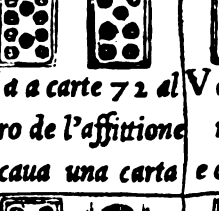 d a carte 72 al V
ro de l'affittione
caua una carta e